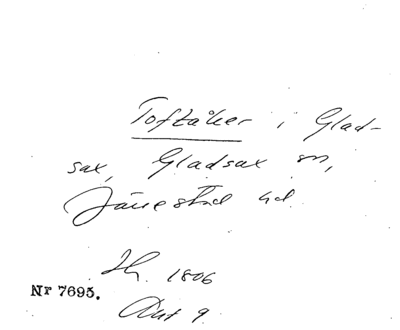 Toftåker i Glad-
sax, Gladsax sn,
Järrestad hd
Lh. 1806
Nr 7695.
Akt 9